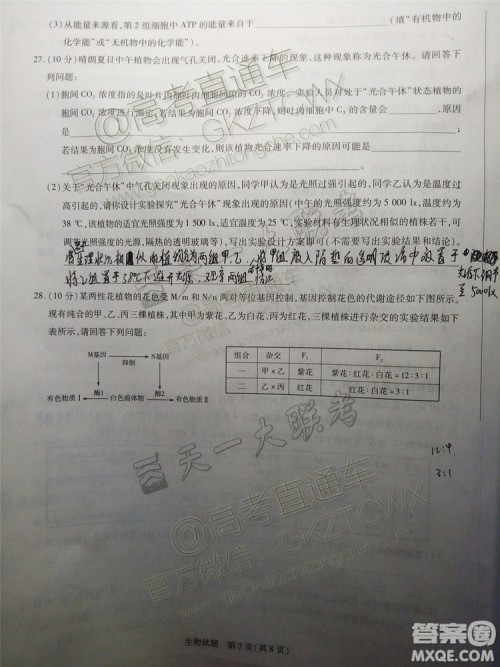 (3)从能量来源看,第2组细胞中ATP的能量来自于____________(填“有机物中的
化学能”或“无机物中的化学能”)。
27.(10分)晴朗夏日中午植物会出现气孔关闭,光合速率下降的现象,这种现象称为光合午休。请回答下
列问题:
(1)胞间CO₂浓度指的是叶片肉细胞间的CO₂浓度。实验人员对处于“光合午休”状态植物的
胞间CO₂浓度进行测定,若结果为胞间CO₂浓度下降,则叶肉细胞中C₃的含量会________,原因
是________________;
若结果为胞间CO₂浓度没有发生变化,则该植物光合速率下降的原因可能是________
________。
(2)关于“光合午休”中气孔关闭现象出现的原因,同学甲认为是光照过强引起的,同学乙认为是温度过
高引起的,请你设计实验探究“光合午休”现象出现的原因(中午的光照强度约为5 000 lx,温度约为
38 ℃,该植物的适宜光照强度为1 500 lx,适宜温度为25 ℃,实验材料有生理状况相似的植株若干,可
调节光照强度的光源,隔热的透明玻璃等),写出实验设计方案即可(不需要写出实验结果和结论)。
28.(10分)某两性花植物的花色受M/m和N/n两对等位基因控制,基因控制花色的代谢途径如下图所示。
现有纯合的甲、乙、丙三棵植株,其中甲为紫花、乙为白花、丙为红花,三棵植株进行杂交的实验结果如下
表所示,请回答下列问题:
M基因 抑制 N基因
有色物质Ⅰ 酶1 白色前体物 酶2 有色物质Ⅱ
组合 杂交 F₁ F₂
一 甲×乙 紫花 紫花:红花:白花=12:3:1
二 乙×丙 红花 红花:白花=3:1
3:1
天一大联考
@高考直通车
官方微信:GKZTCWX
www.gaokaozhitongche.com
@高考直通车
官方微信:GKZTCWX
生物试题 第7页(共8页)
答案圈
MXQE.COM